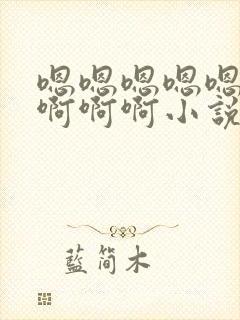 嗯嗯嗯嗯嗯
啊啊啊小說
藍简木